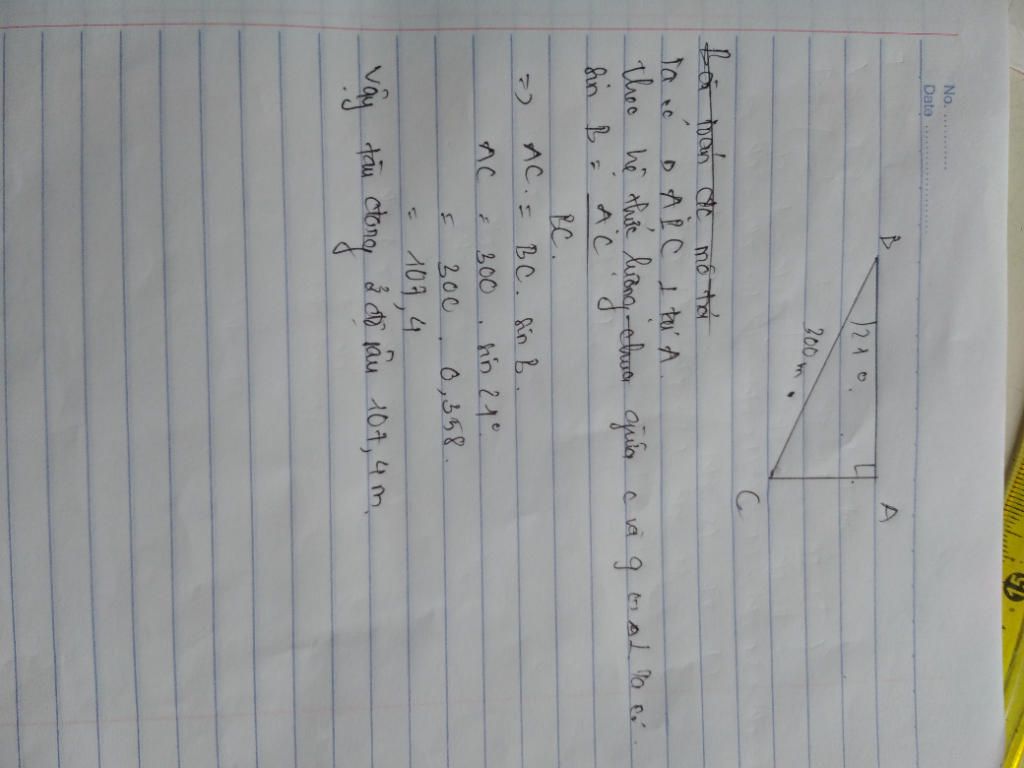 No. ................
Date ................
B
21°
A
300m.
C
Bài toán đc mô tả
Ta có △ ABC ⊥ tại A.
theo hệ thức lượng giữa c và g trong △⊥ ta có.
sin B = AC
BC.
=> AC = BC. sin B.
AC = 300. sin 21°.
= 300. 0,358.
= 107,4
Vậy tàu đang ở độ sâu 107,4 m.